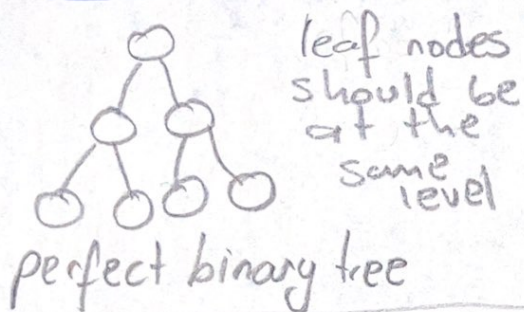 leaf nodes
should be
at the
same
level
perfect binary tree